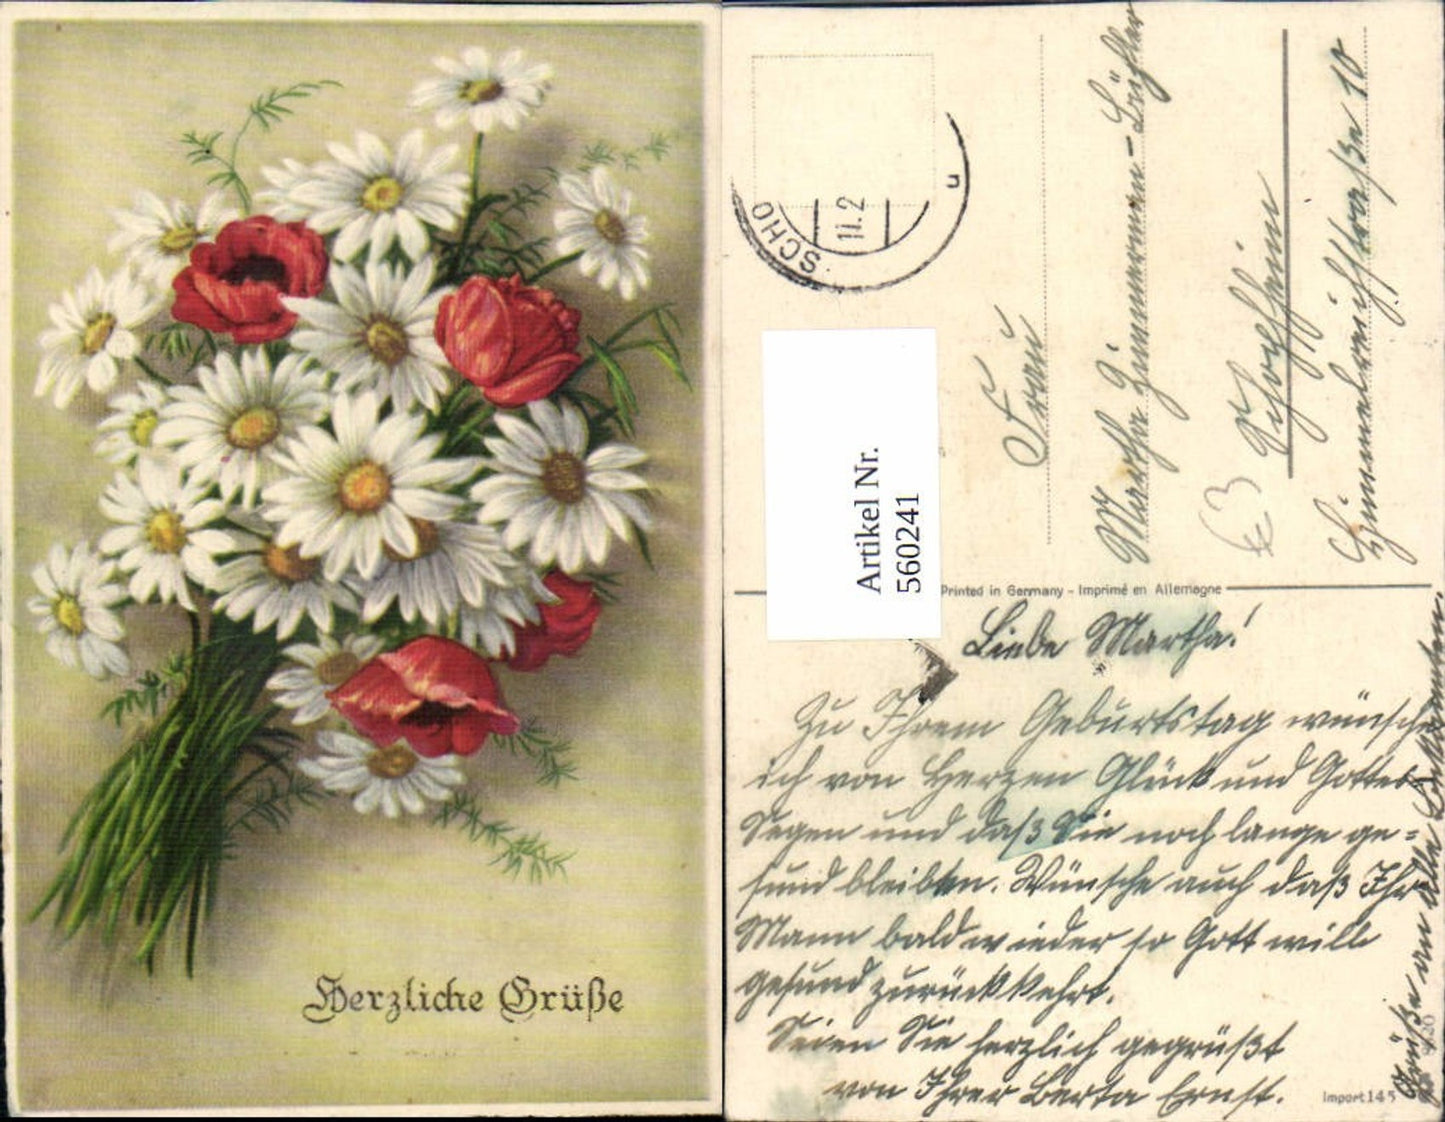 Herzliche Grüße
SCHO
11.2
u
Artikel Nr.
560241
Frau
Martha Zimmermann-Bühler
Schopfheim
Himmelreichstraße 10
€3
Printed in Germany - Imprimé en Allemagne
Liebe Martha!
Zu Ihrem Geburtstag wünsche
ich von Herzen Glück und Gottes
Segen und daß Sie noch lange ge=
sund bleiben. Wünsche auch daß Ihr
Mann bald wieder so Gott will
gesund zurückkehrt.
Seien Sie herzlich gegrüßt
von Ihrer Berta Ernst.
Grüße an alle Bekannten.
Import 145